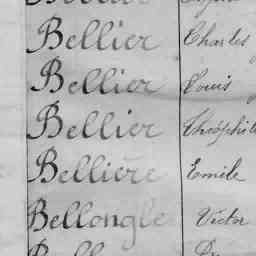 Bellier Charles
Bellier Louis
Bellier Théophile
Bellière Emile
Bellongle Victor